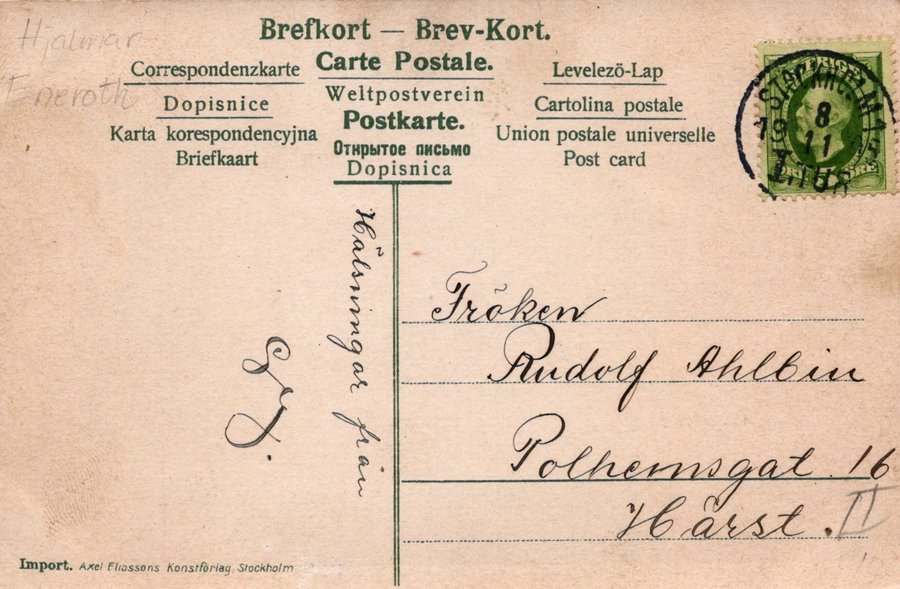 Hjalmar
Eneroth
Brefkort — Brev-Kort.
Correspondenzkarte
Carte Postale.
Levelezö-Lap
Dopisnice
Weltpostverein
Cartolina postale
Karta korespondencyjna
Postkarte.
Union postale universelle
Briefkaart
Открытое письмо
Post card
Dopisnica
STOCKHOLM
8
11
Hälsningar från
Fröken
Rudolf Ahlbin
Polhemsgat 16
Härst. II
Import. Axel Eliassons Konstförlag Stockholm